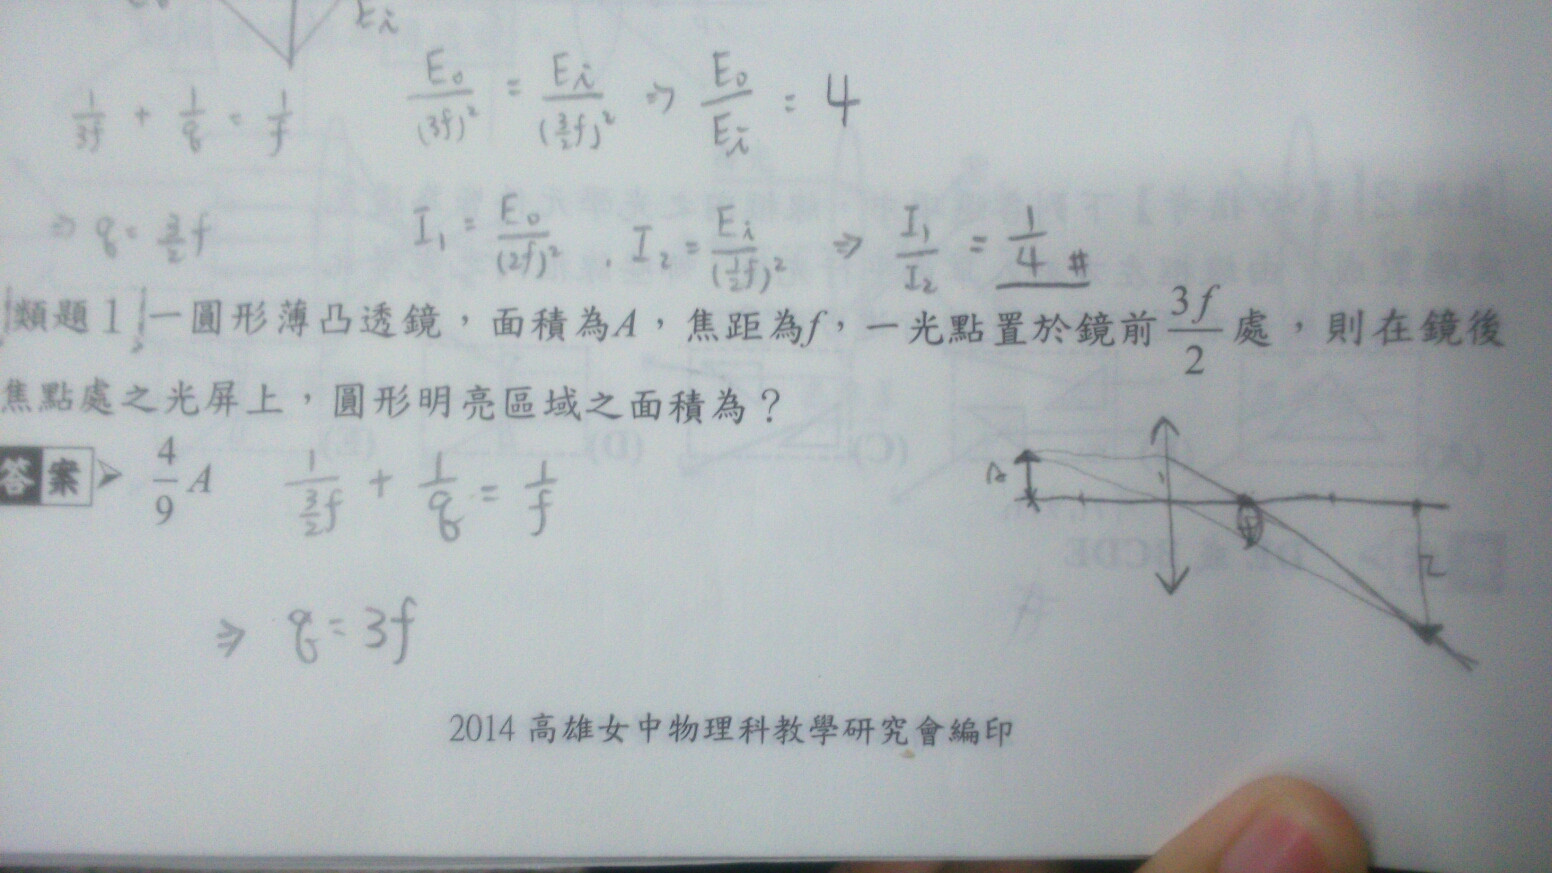 Ei
1/3f + 1/q = 1/f
E₀/(3f)² = Ei/(3/2 f)² ⇒ E₀/Ei = 4
⇒ q = 3/2 f
I₁ = E₀/(2f)² , I₂ = Ei/(1/2 f)² ⇒ I₁/I₂ = 1/4 #
類題1 一圓形薄凸透鏡,面積為A,焦距為f,一光點置於鏡前 3f/2 處,則在鏡後
焦點處之光屏上,圓形明亮區域之面積為?
答案 4/9 A
1/(3/2 f) + 1/q = 1/f
⇒ q = 3f
2014 高雄女中物理科教學研究會編印